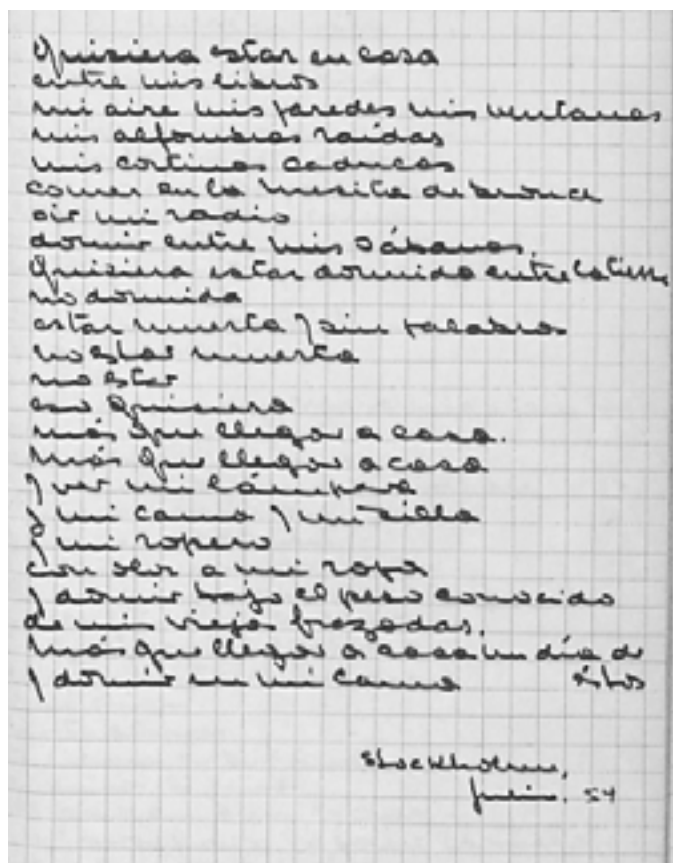 Quisiera estar en casa
entre mis libros
mi aire mis paredes mis ventanas
mis alfombras raídas
mis cortinas caducas
comer en la mesita de bronce
oir mi radio
dormir entre mis sábanas.
Quisiera estar dormida entre la tierra
no dormida
estar muerta y sin palabras
no estar muerta
no estar
eso quisiera
más que llegar a casa.
más que llegar a casa
y ver mi lámpara
y mi cama y mi silla
y mi ropero
con olor a mi ropa
y dormir bajo el peso conocido
de mis viejas frazadas.
más que llegar a casa un día de
y dormir en mi cama éstos
Stockholm,
junio. 54